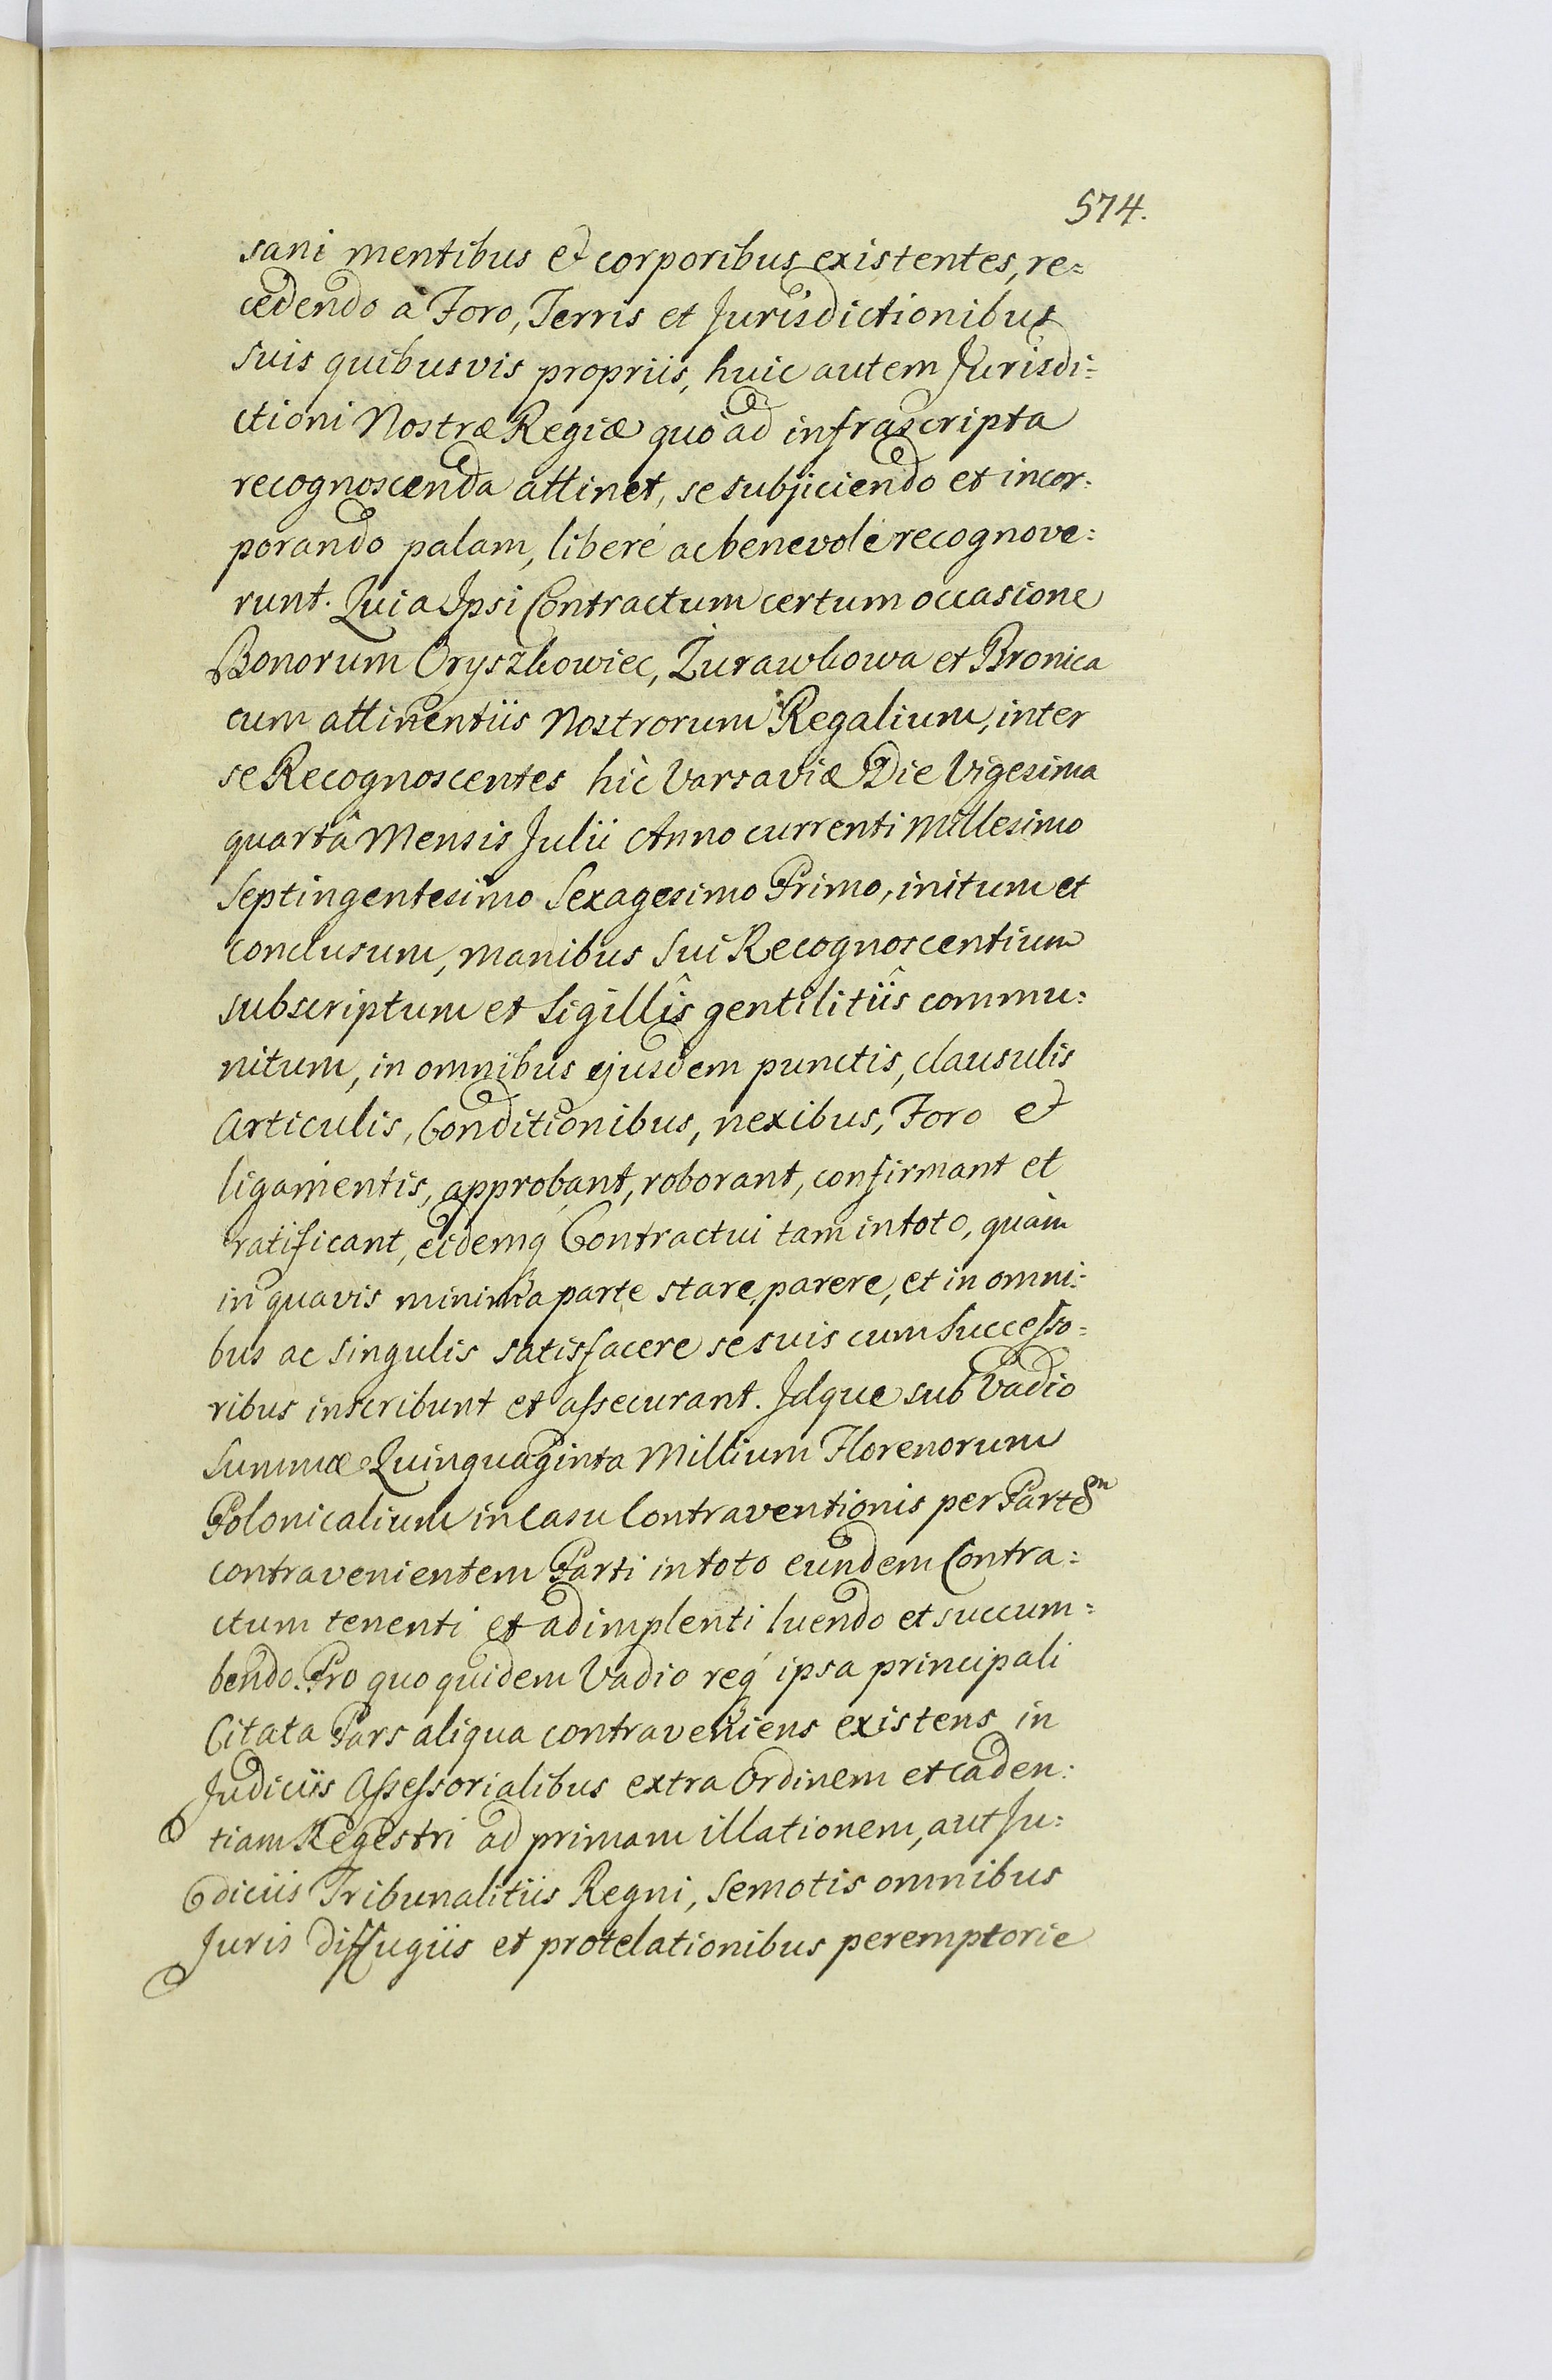 574.
sani mentibus et corporibus existentes, re=
cedendo à Foro, Terris et Jurisdictionibus
suis quibusvis propriis, huic autem Jurisdi=
ctioni Nostræ Regiæ quò ad infrascripta
recognoscenda attinet, se subjiciendo et incor=
porando palam, liberé ac benevolé recognove=
runt. Quia Ipsi Contractum certum occasione
Bonorum Oryszkowiec, Żurawkowa et Bronica
cum attinentiis Nostrorum Regalium, inter
se Recognoscentes hîc Varsaviæ Die Vigesima
quartâ Mensis Julii Anno currenti Millesimo
Septingentesimo Sexagesimo Primo, initum et
conclusum, manibus Sui Recognoscentium
subscriptum et Sigillîs gentilitiîs commu=
nitum, in omnibus ejusdem punctis, clausulis
Articulis, Conditionibus, nexibus, Foro et
ligamentis, approbant, roborant, confirmant et
ratificant, eidemq Contractui tam in toto, quàm
in quavis minima parte stare, parere, et in omni=
bus ac singulis satisfacere se suis cum Successo=
ribus inscribunt et assecurant. Idque sub Vadio
Summæ Quinquaginta Millium Florenorum
Polonicalium in Casu Contraventionis per Partem
contravenientem Parti in toto eundem Contra=
ctum tenenti et adimplenti luendo et succum=
bendo. Pro quo quidem Vadio req́ ipsa principali
Citata Pars aliqua contraveniens existens in
Judiciis Assessorialibus extra Ordinem et caden=
tiam Regestri ad primam illationem, aut Ju=
diciis Tribunalitiis Regni, Semotis omnibus
Juris diffugiis et protelationibus peremptorie